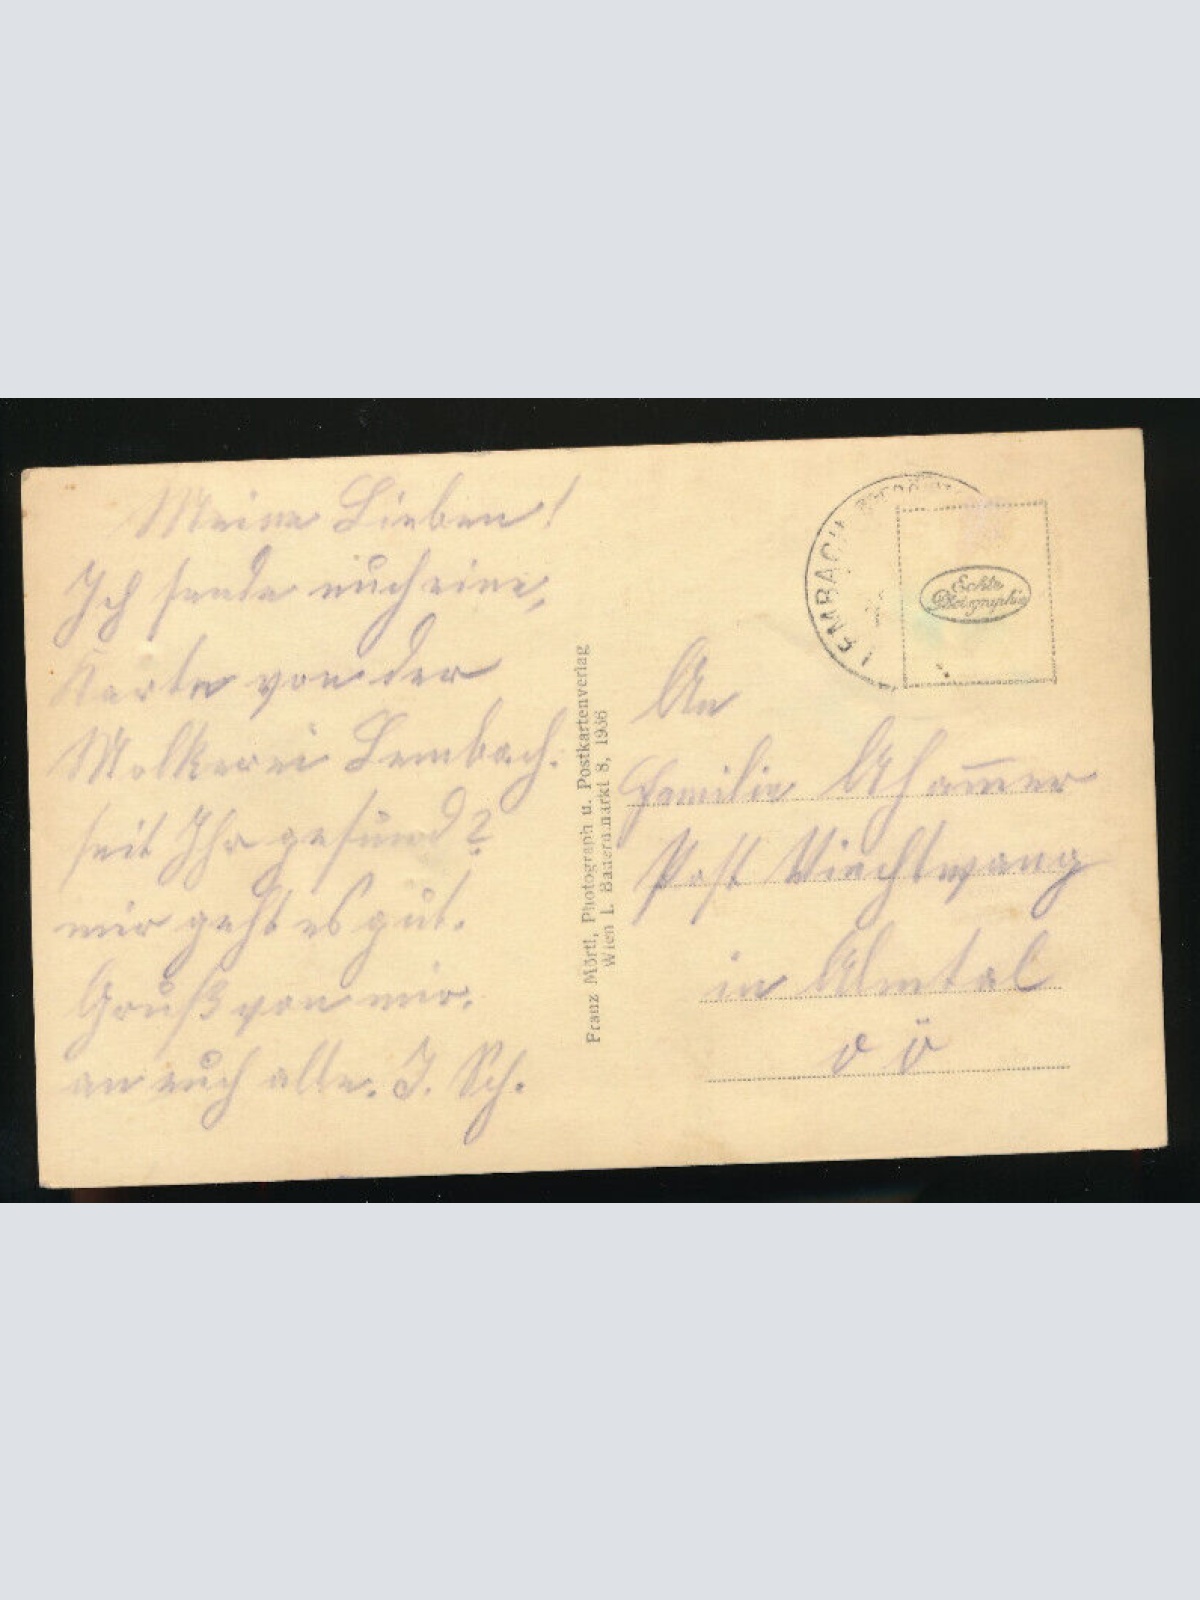 Meine Lieben!
Ich sende euch eine,
Karte von der
Molkerei Lembach.
seit Ihr gesund?
mir geht es gut.
Gruß von mir.
an euch alle. J. Sch.
Franz Mörtl, Photograph u. Postkartenverlag
Wien I. Bauernmarkt 8, 1936
LEMBACH
Echte
Photographie
An
Familie Ahammer
Post Viechtwang
in Almtal
OÖ